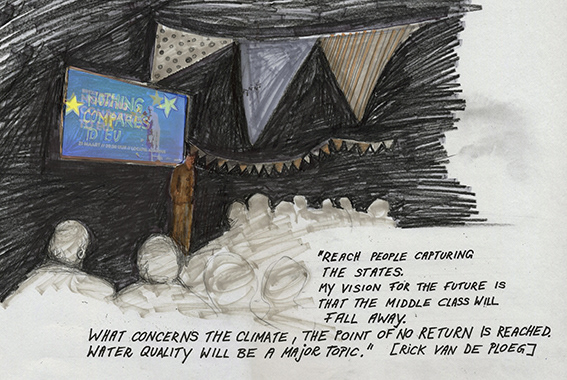 NOTHING
COMPARES
TO EU
"REACH PEOPLE CAPTURING
THE STATES.
MY VISION FOR THE FUTURE IS
THAT THE MIDDLE CLASS WILL
FALL AWAY.
WHAT CONCERNS THE CLIMATE, THE POINT OF NO RETURN IS REACHED.
WATER QUALITY WILL BE A MAJOR TOPIC." [RICK VAN DE PLOEG]